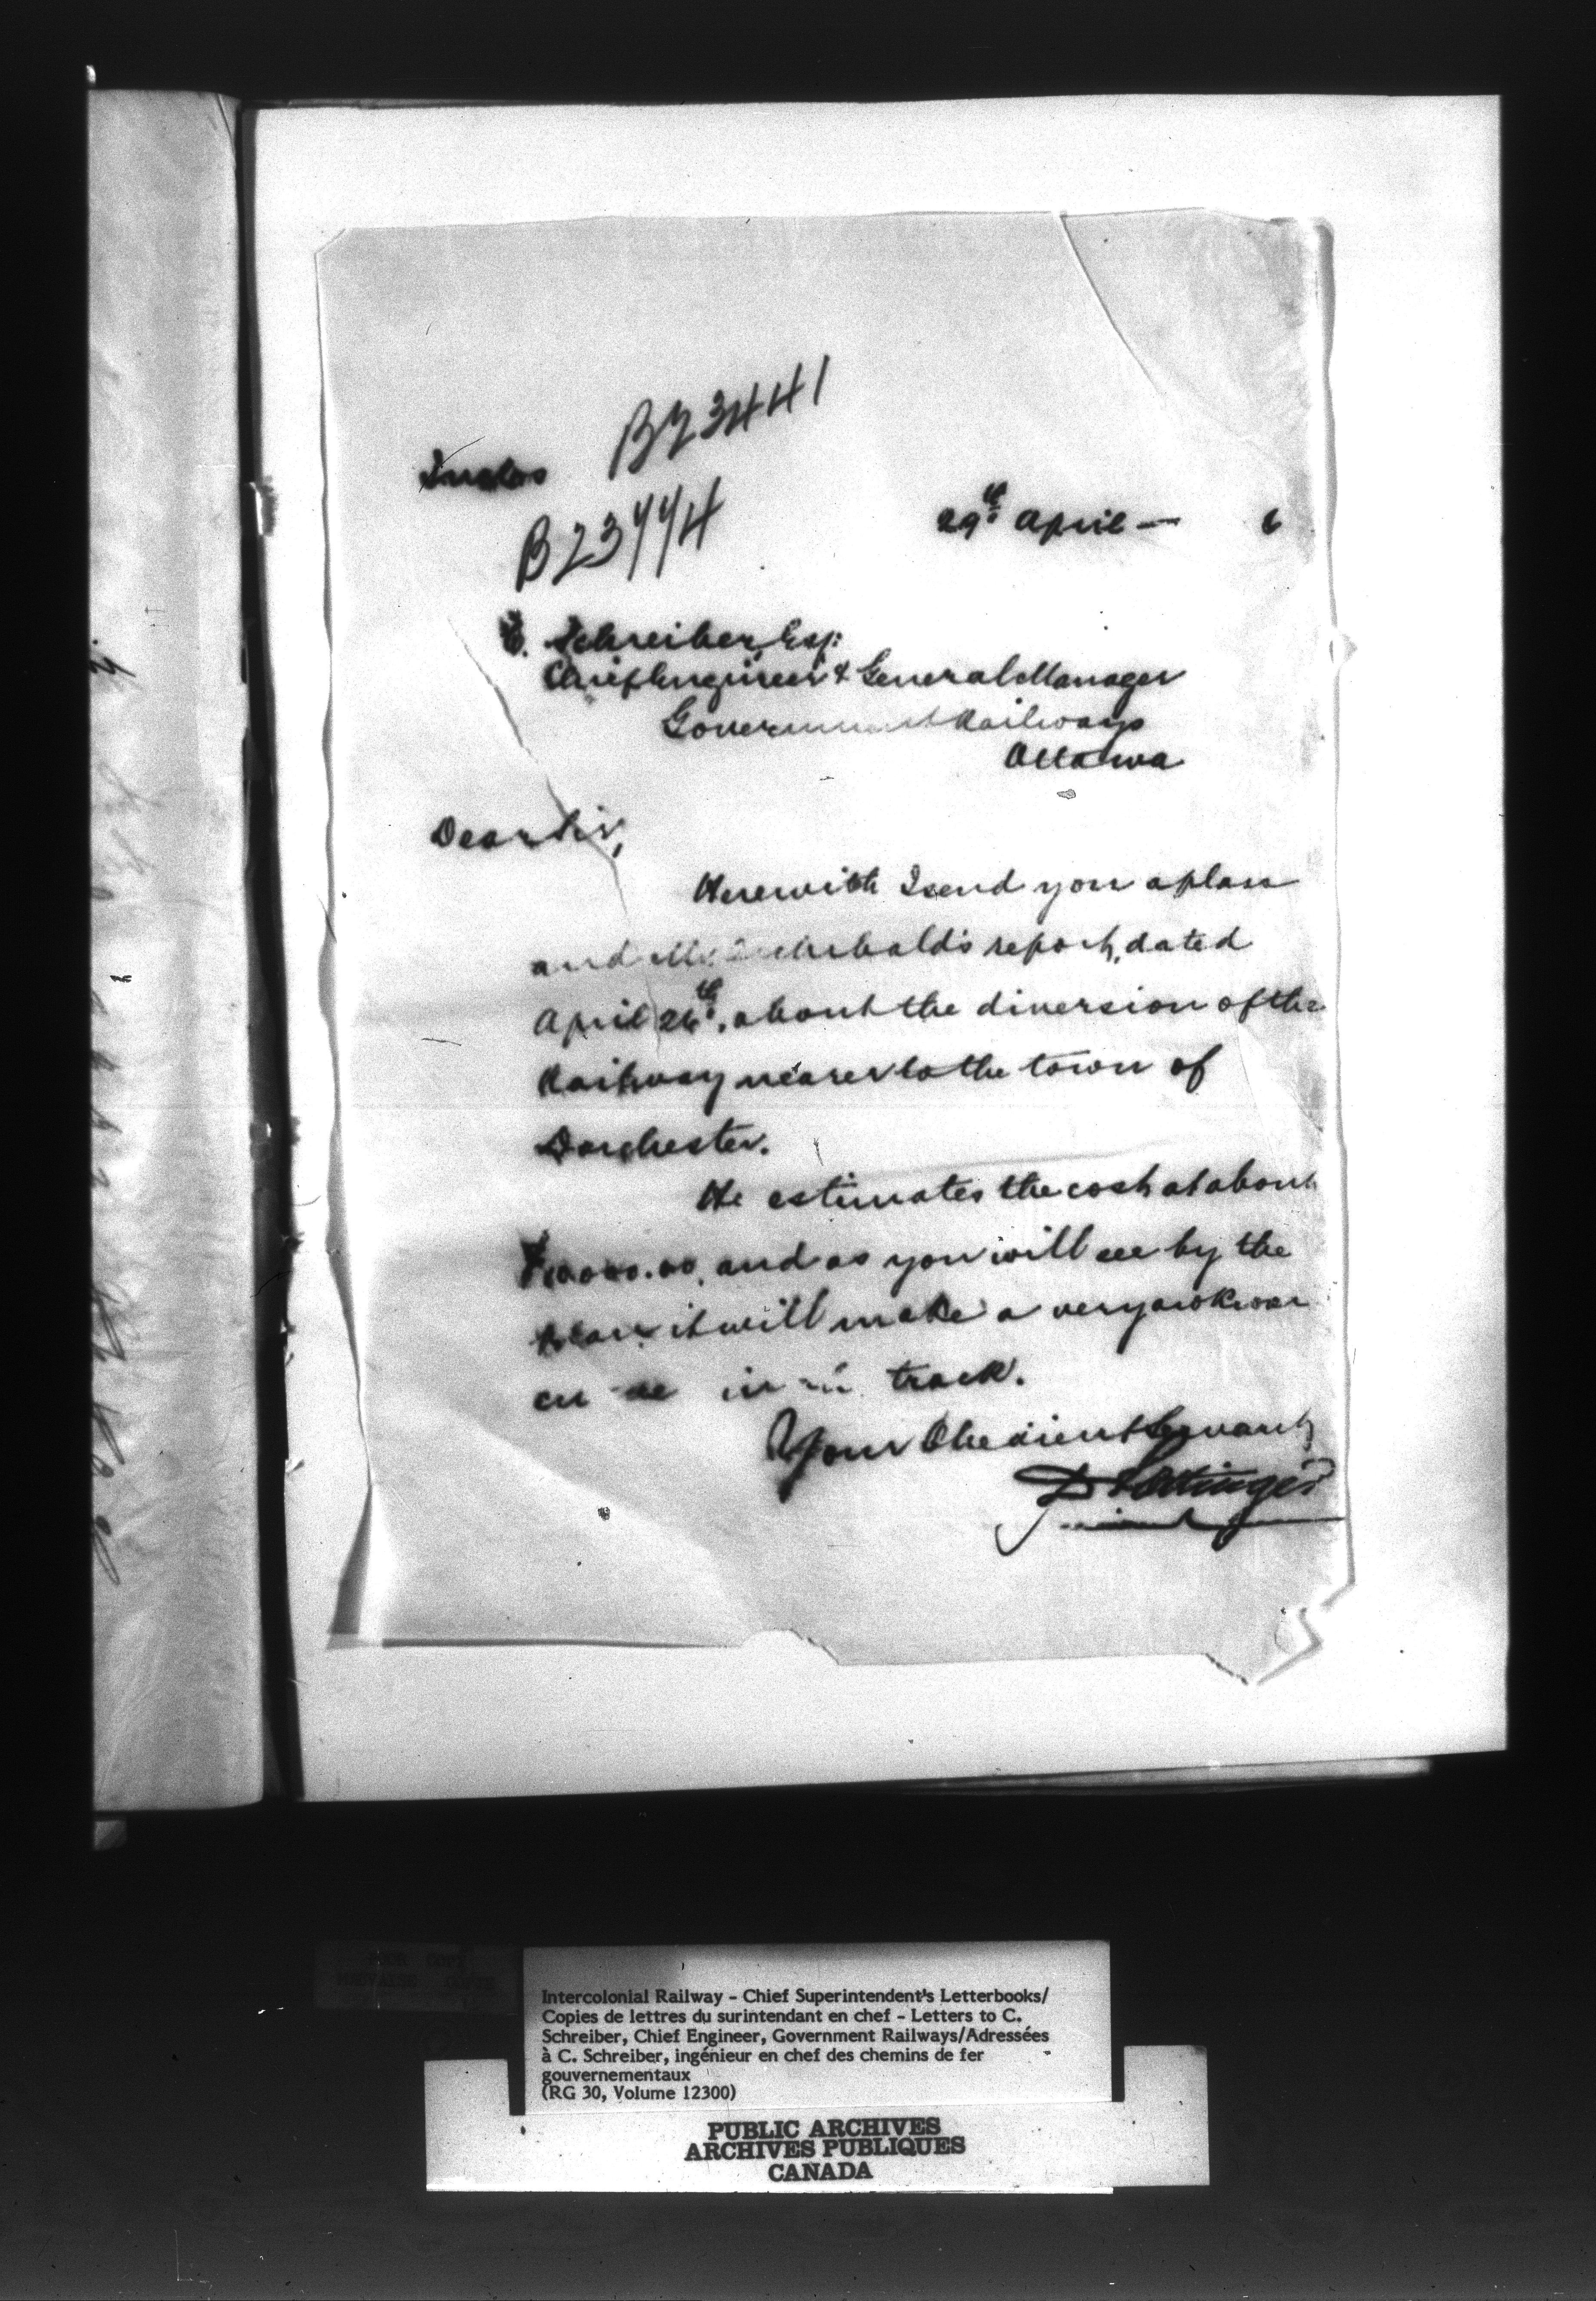 Inclos
B23441
B23444
29th April — 6
C. Schreiber, Esq:
Chief Engineer & General Manager
Government Railways
Ottawa
Dear Sir,
Herewith I send you a plan
and Mr. Archibald's report, dated
April 26th, about the diversion of the
Railway nearer to the town of
Dorchester.
He estimates the cost at about
and as you will see by the
plan it will make a very awkwar
in track.
Your Obedient Servant,
D Pottinger
Intercolonial Railway - Chief Superintendent's Letterbooks/
Copies de lettres du surintendant en chef - Letters to C.
Schreiber, Chief Engineer, Government Railways/Adressées
à C. Schreiber, ingénieur en chef des chemins de fer
gouvernementaux
(RG 30, Volume 12300)
PUBLIC ARCHIVES
ARCHIVES PUBLIQUES
CANADA